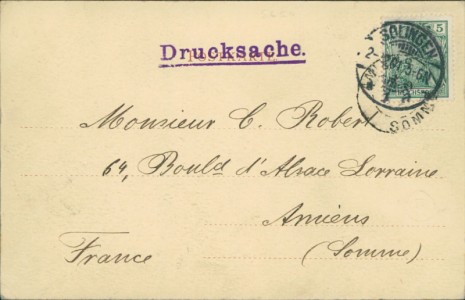 Drucksache.
POSTKARTE
5
SOLINGEN
SOMME
Monsieur C. Robert
64, Bould d'Alsace Lorraine
Amiens
France (Somme)